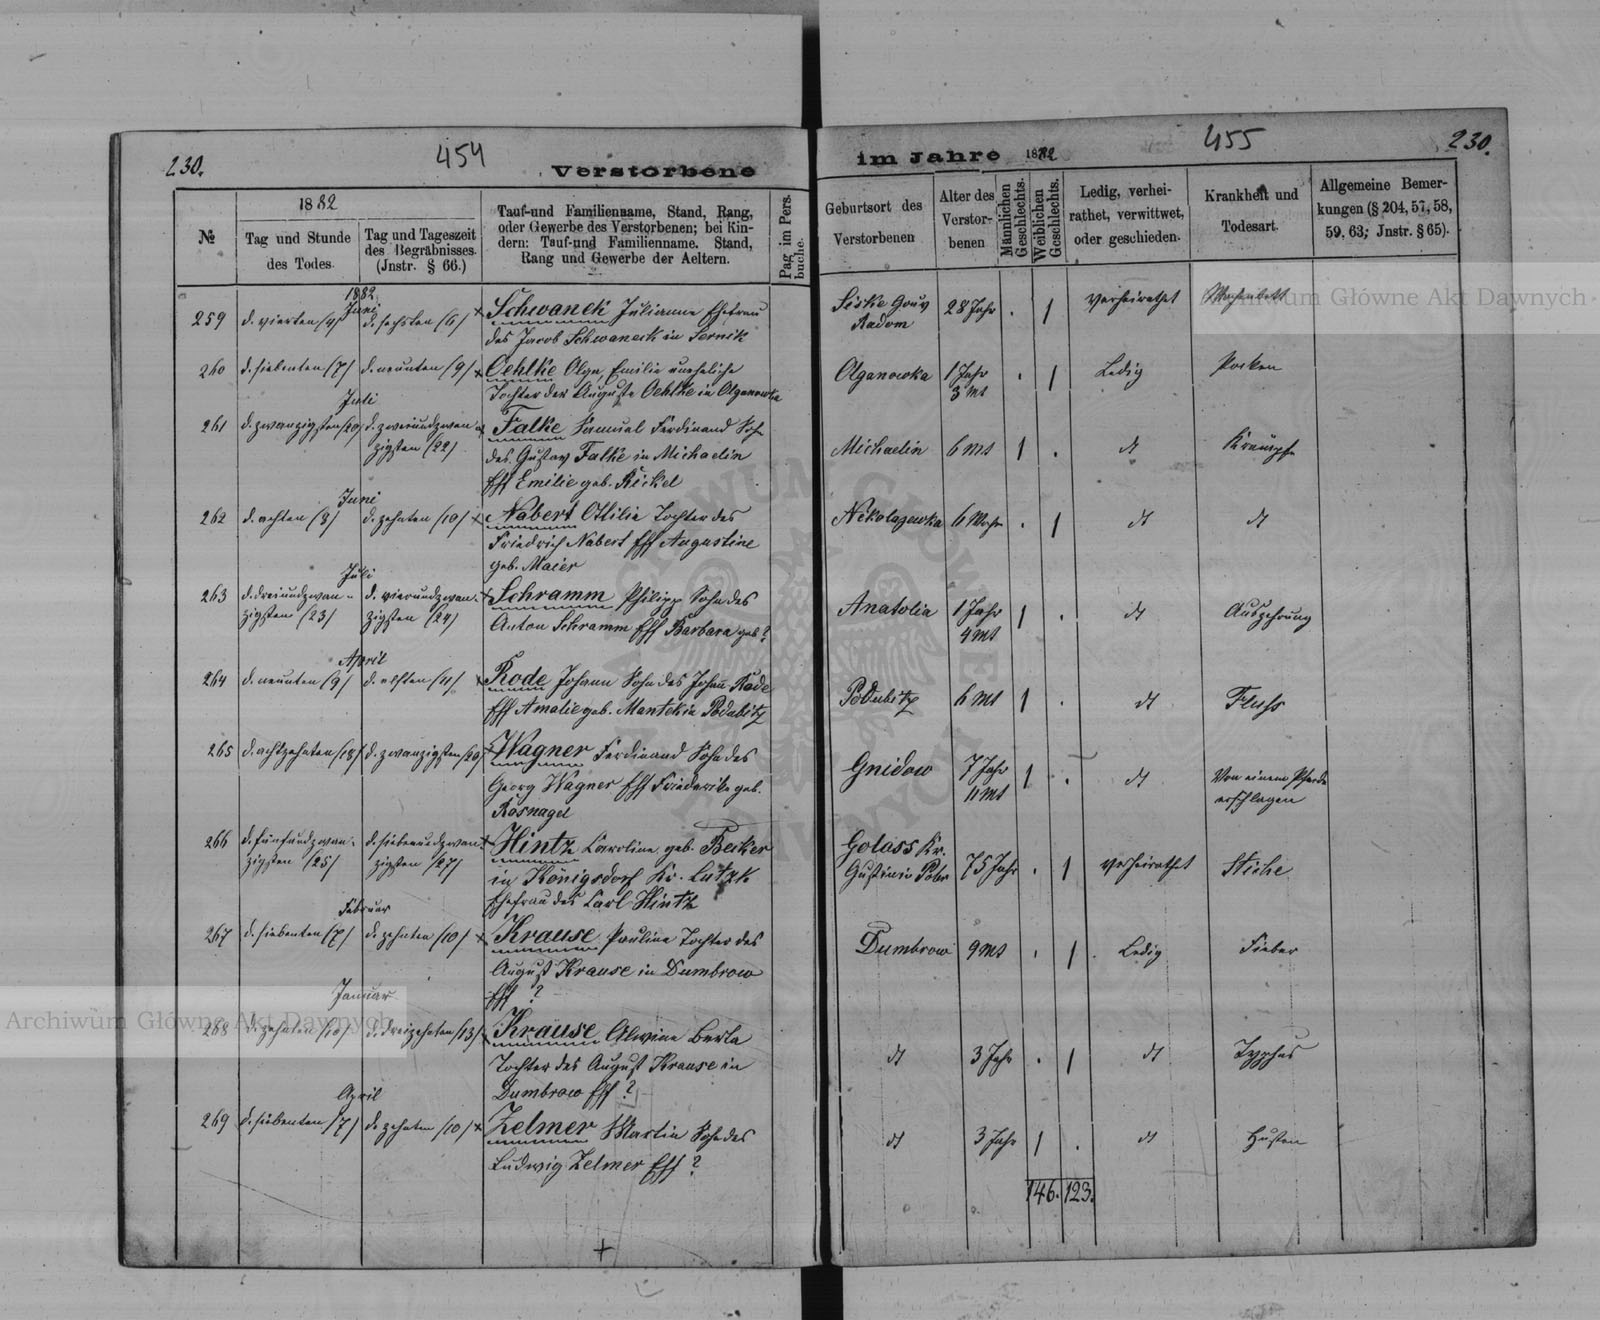 230.
454
Verstorbene
1882
№
Tag und Stunde
des Todes.
Tag und Tageszeit
des Begräbnisses.
(Jnstr. § 66.)
Tauf-und Familienname, Stand, Rang,
oder Gewerbe des Verstorbenen; bei Kin-
dern: Tauf-und Familienname. Stand,
Rang und Gewerbe der Aeltern.
Pag im Pers.
buche.
1882.
Juni
259 d. vierten (4) d. sechsten (6) × Schwanek Julianne Ehefrau
des Jacob Schwaneck in Sernik
260 d. siebenten (7) d. neunten (9) × Oehlke Olga, Emilie uneheliche
Tochter der Auguste Oehlke in Olganowka
Juli
261 d. zwanzigsten (20) d. zweiundzwan- × Falke Samual Ferdinand Sohn
zigsten (22) des Gustav Falke in Michaelin
Eff Emilie geb. Rickel
Juni
262 d. achten (8) d. zehnten (10) × Nabert Ottilie Tochter des
Friedrich Nabert Eff Augustine
geb. Maier
Juli
263 d. dreiundzwan- d. vierundzwan- × Schramm Philipp Sohn des
zigsten (23) zigsten (24) Anton Schramm Eff Barbara geb ?
April
264 d. neunten (9) d. elften (11) × Rode Johann Sohn des Johann Rode
Eff Amalie geb. Mantek in Podubitz
265 d. achtzehnten (18) d. zwanzigsten (20) × Wagner Ferdinand Sohn des
Georg Wagner Eff Friederike geb.
Rosnagel
266 d. fünfundzwan- d. siebenundzwan- × Hintz Caroline geb. Becker
zigsten (25) zigsten (27) in Königsdorf Kr. Lutzk
Ehefrau des Carl Hintz
Februar
267 d. siebenten (7) d. zehnten (10) × Krause Pauline Tochter des
August Krause in Dumbrow
Eff ?
Januar
268 d. zehnten (10) d. dreizehnten (13) × Krause Alwine Berta
Tochter des August Krause in
Dumbrow Eff ?
April
269 d. siebenten (7) d. zehnten (10) × Zelmer Martin Sohn des
Ludwig Zelmer Eff ?
+
im Jahre 1882
455
230.
Geburtsort des
Verstorbenen
Alter des
Verstor-
benen
Männlichen
Geschlechts.
Weiblichen
Geschlechts.
Ledig, verhei-
rathet, verwittwet,
oder geschieden.
Krankheit und
Todesart.
Allgemeine Bemer-
kungen (§ 204, 57, 58,
59, 63; Jnstr. § 65).
Siske Gouv 28 Jahr . 1 verheirathet Wochenbett
Radom
Olganowka 1 Jahr . 1 Ledig Pocken
3 Mt
Michaelin 6 Mt 1 . dt Krämpfe
Nikolajewka 6 Woch . 1 dt dt
Anatolia 1 Jahr 1 . dt Auszehrung
4 Mt
Podubitz 6 Mt 1 . dt Fluss
Gnidow 7 Jahr 1 . dt Von einem Pferde
11 Mt erschlagen
Goloss Kr.
Gustinin Polen 75 Jahr . 1 verheirathet Stiche
Dumbrow 9 Mt . 1 Ledig Fieber
dt 3 Jahr . 1 dt Typhus
dt 3 Jahr 1 . dt Husten
146. 123.
Archiwum Główne Akt Dawnych
Archiwum Główne Akt Dawnych
ARCHIWUM GŁÓWNE AKT DAWNYCH